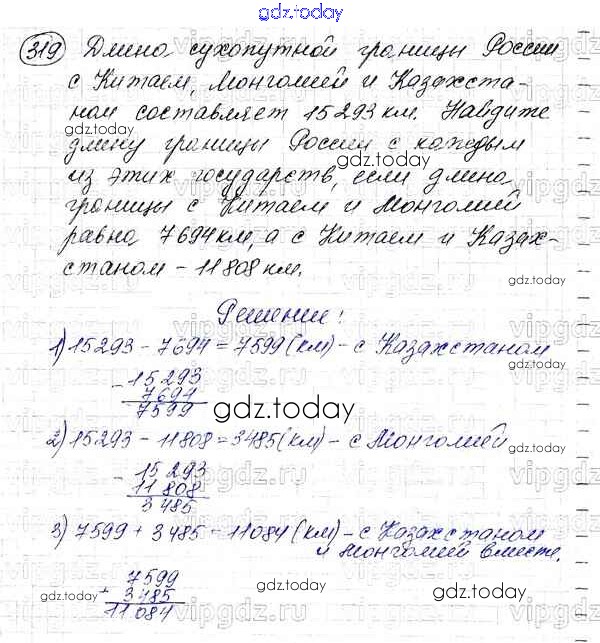 gdz.today
319 Длина сухопутной границы России
с Китаем, Монголией и Казахста-
ном составляет 15 293 км. Найдите
gdz.today
длину границы России с каждым
gdz.today
из этих государств, если длина
границы с Китаем и Монголией
gdz.today
равна 7 694 км, а с Китаем и Казах-
станом – 11 808 км.
gdz.today
Решение:
1) 15293 – 7694 = 7599 (км) – с Казахстаном
– 15 293
7694
7599
gdz.today
2) 15293 – 11808 = 3485 (км) – с Монголией
– 15 293
11 808
3 485
gdz.today
3) 7599 + 3485 = 11084 (км) – с Казахстаном
и Монголией вместе.
+ 7599
3485
11 084
gdz.today
gdz.today